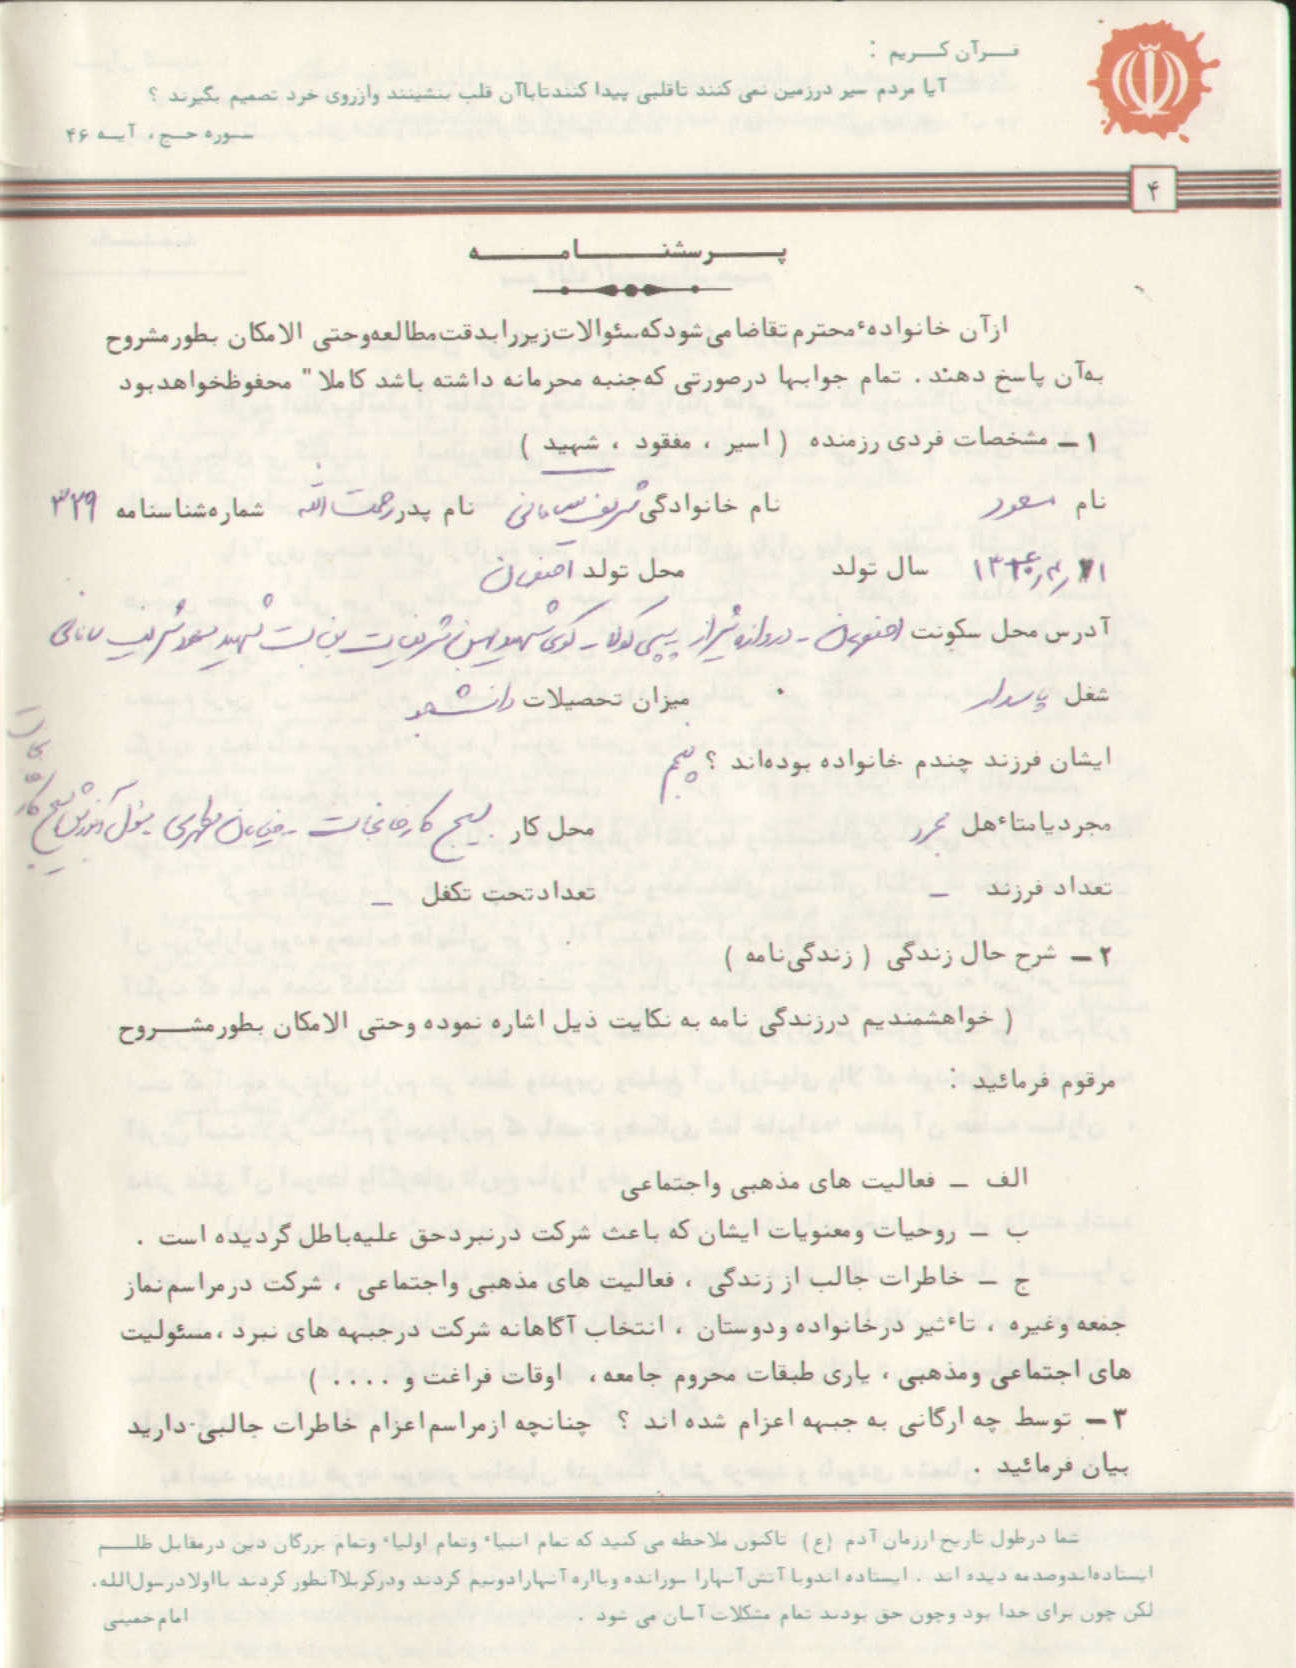 قرآن کریم :
آیا مردم سیر درزمین نمی کنند تاقلبی پیدا کنندتاباآن قلب بنشینند وازروی خرد تصمیم بگیرند ؟
سوره حج ، آیه ۴۶
۴
پرسشنامه
ازآن خانوادهٔ محترم تقاضا می شودکه سئوالات زیر را بدقت مطالعه وحتی الامکان بطور مشروح
به آن پاسخ دهند . تمام جوابها درصورتی که جنبه محرمانه داشته باشد کاملا" محفوظ خواهد بود
۱ – مشخصات فردی رزمنده ( اسیر ، مفقود ، شهید )
نام مسعود نام خانوادگی شریف سامانی نام پدر رحمت الله شماره شناسنامه ۳۲۹
سال تولد محل تولد اصفهان
آدرس محل سکونت اصفهان - دروازه شیراز پپسی کولا - کوی شهید بن بست شهید مسعود شریف سامانی
شغل پاسدار میزان تحصیلات دانشجو
ایشان فرزند چندم خانواده بوده‌اند ؟ پنجم
مجرد یا متاٴهل مجرد محل کار بسیج کارخانجات - خیابان مطهری مسئول آموزش بسیج کارخانجات
تعداد فرزند – تعدادتحت تکفل –
۲ – شرح حال زندگی ( زندگی‌نامه )
( خواهشمندیم درزندگی نامه به نکایت ذیل اشاره نموده وحتی الامکان بطور مشروح
مرقوم فرمائید :
الف – فعالیت های مذهبی واجتماعی
ب – روحیات ومعنویات ایشان که باعث شرکت درنبرد حق علیه باطل گردیده است .
ج – خاطرات جالب از زندگی ، فعالیت های مذهبی واجتماعی ، شرکت در مراسم نماز
جمعه وغیره ، تاٴثیر درخانواده ودوستان ، انتخاب آگاهانه شرکت درجبهه های نبرد ، مسئولیت
های اجتماعی ومذهبی ، یاری طبقات محروم جامعه ، اوقات فراغت و .... )
۳ – توسط چه ارگانی به جبهه اعزام شده اند ؟ چنانچه ازمراسم اعزام خاطرات جالبی دارید
بیان فرمائید .
شما درطول تاریخ اززمان آدم (ع) تاکنون ملاحظه می کنید که تمام انبیاء وتمام اولیاء وتمام بزرگان دین درمقابل ظلم
ایستاده‌اندوصدمه دیده اند . ایستاده اندوبا آتش آنهارا سورانده وبااره آنهارادونیم کردند ودرکربلاآنطور کردند بااولادرسول‌الله.
لکن چون برای خدا بود وچون حق بودند تمام مشکلات آسان می شود .
امام خمینی